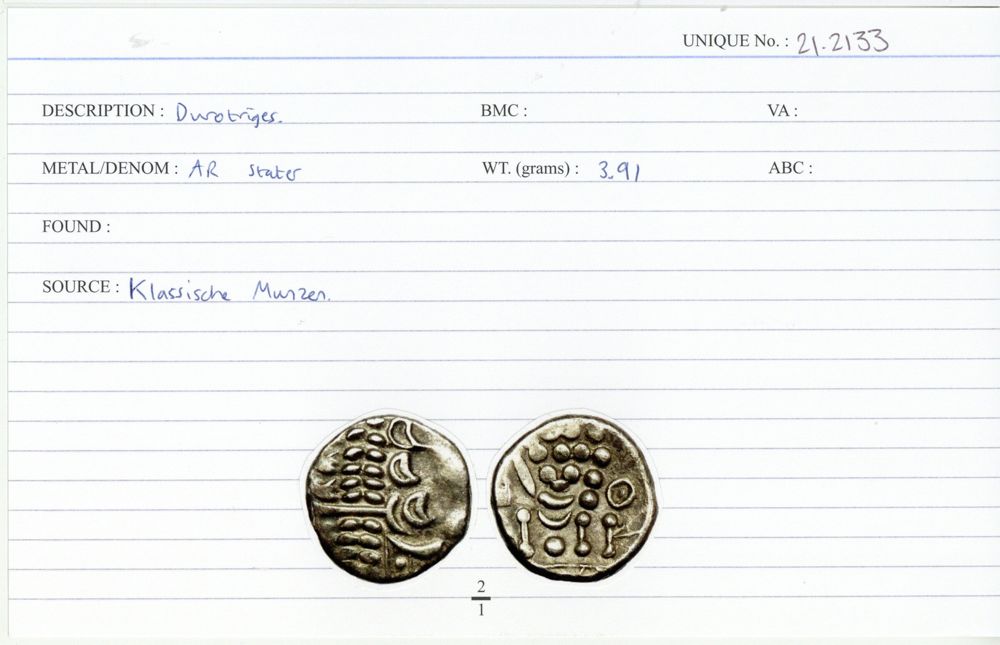 UNIQUE No. : 21.2133
DESCRIPTION : Durotriges. BMC : VA :
METAL/DENOM : AR stater WT. (grams) : 3.91 ABC :
FOUND :
SOURCE : Klassische Munzen.
2
1